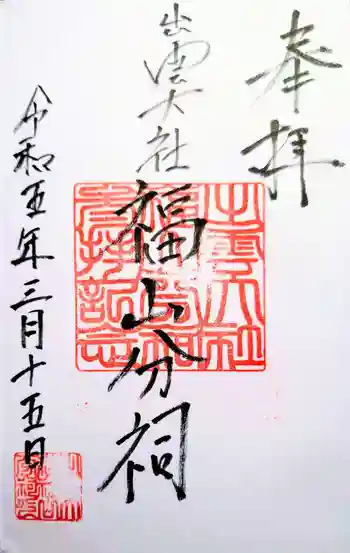 奉拝
出雲大社
福山分祠
令和五年三月十五日